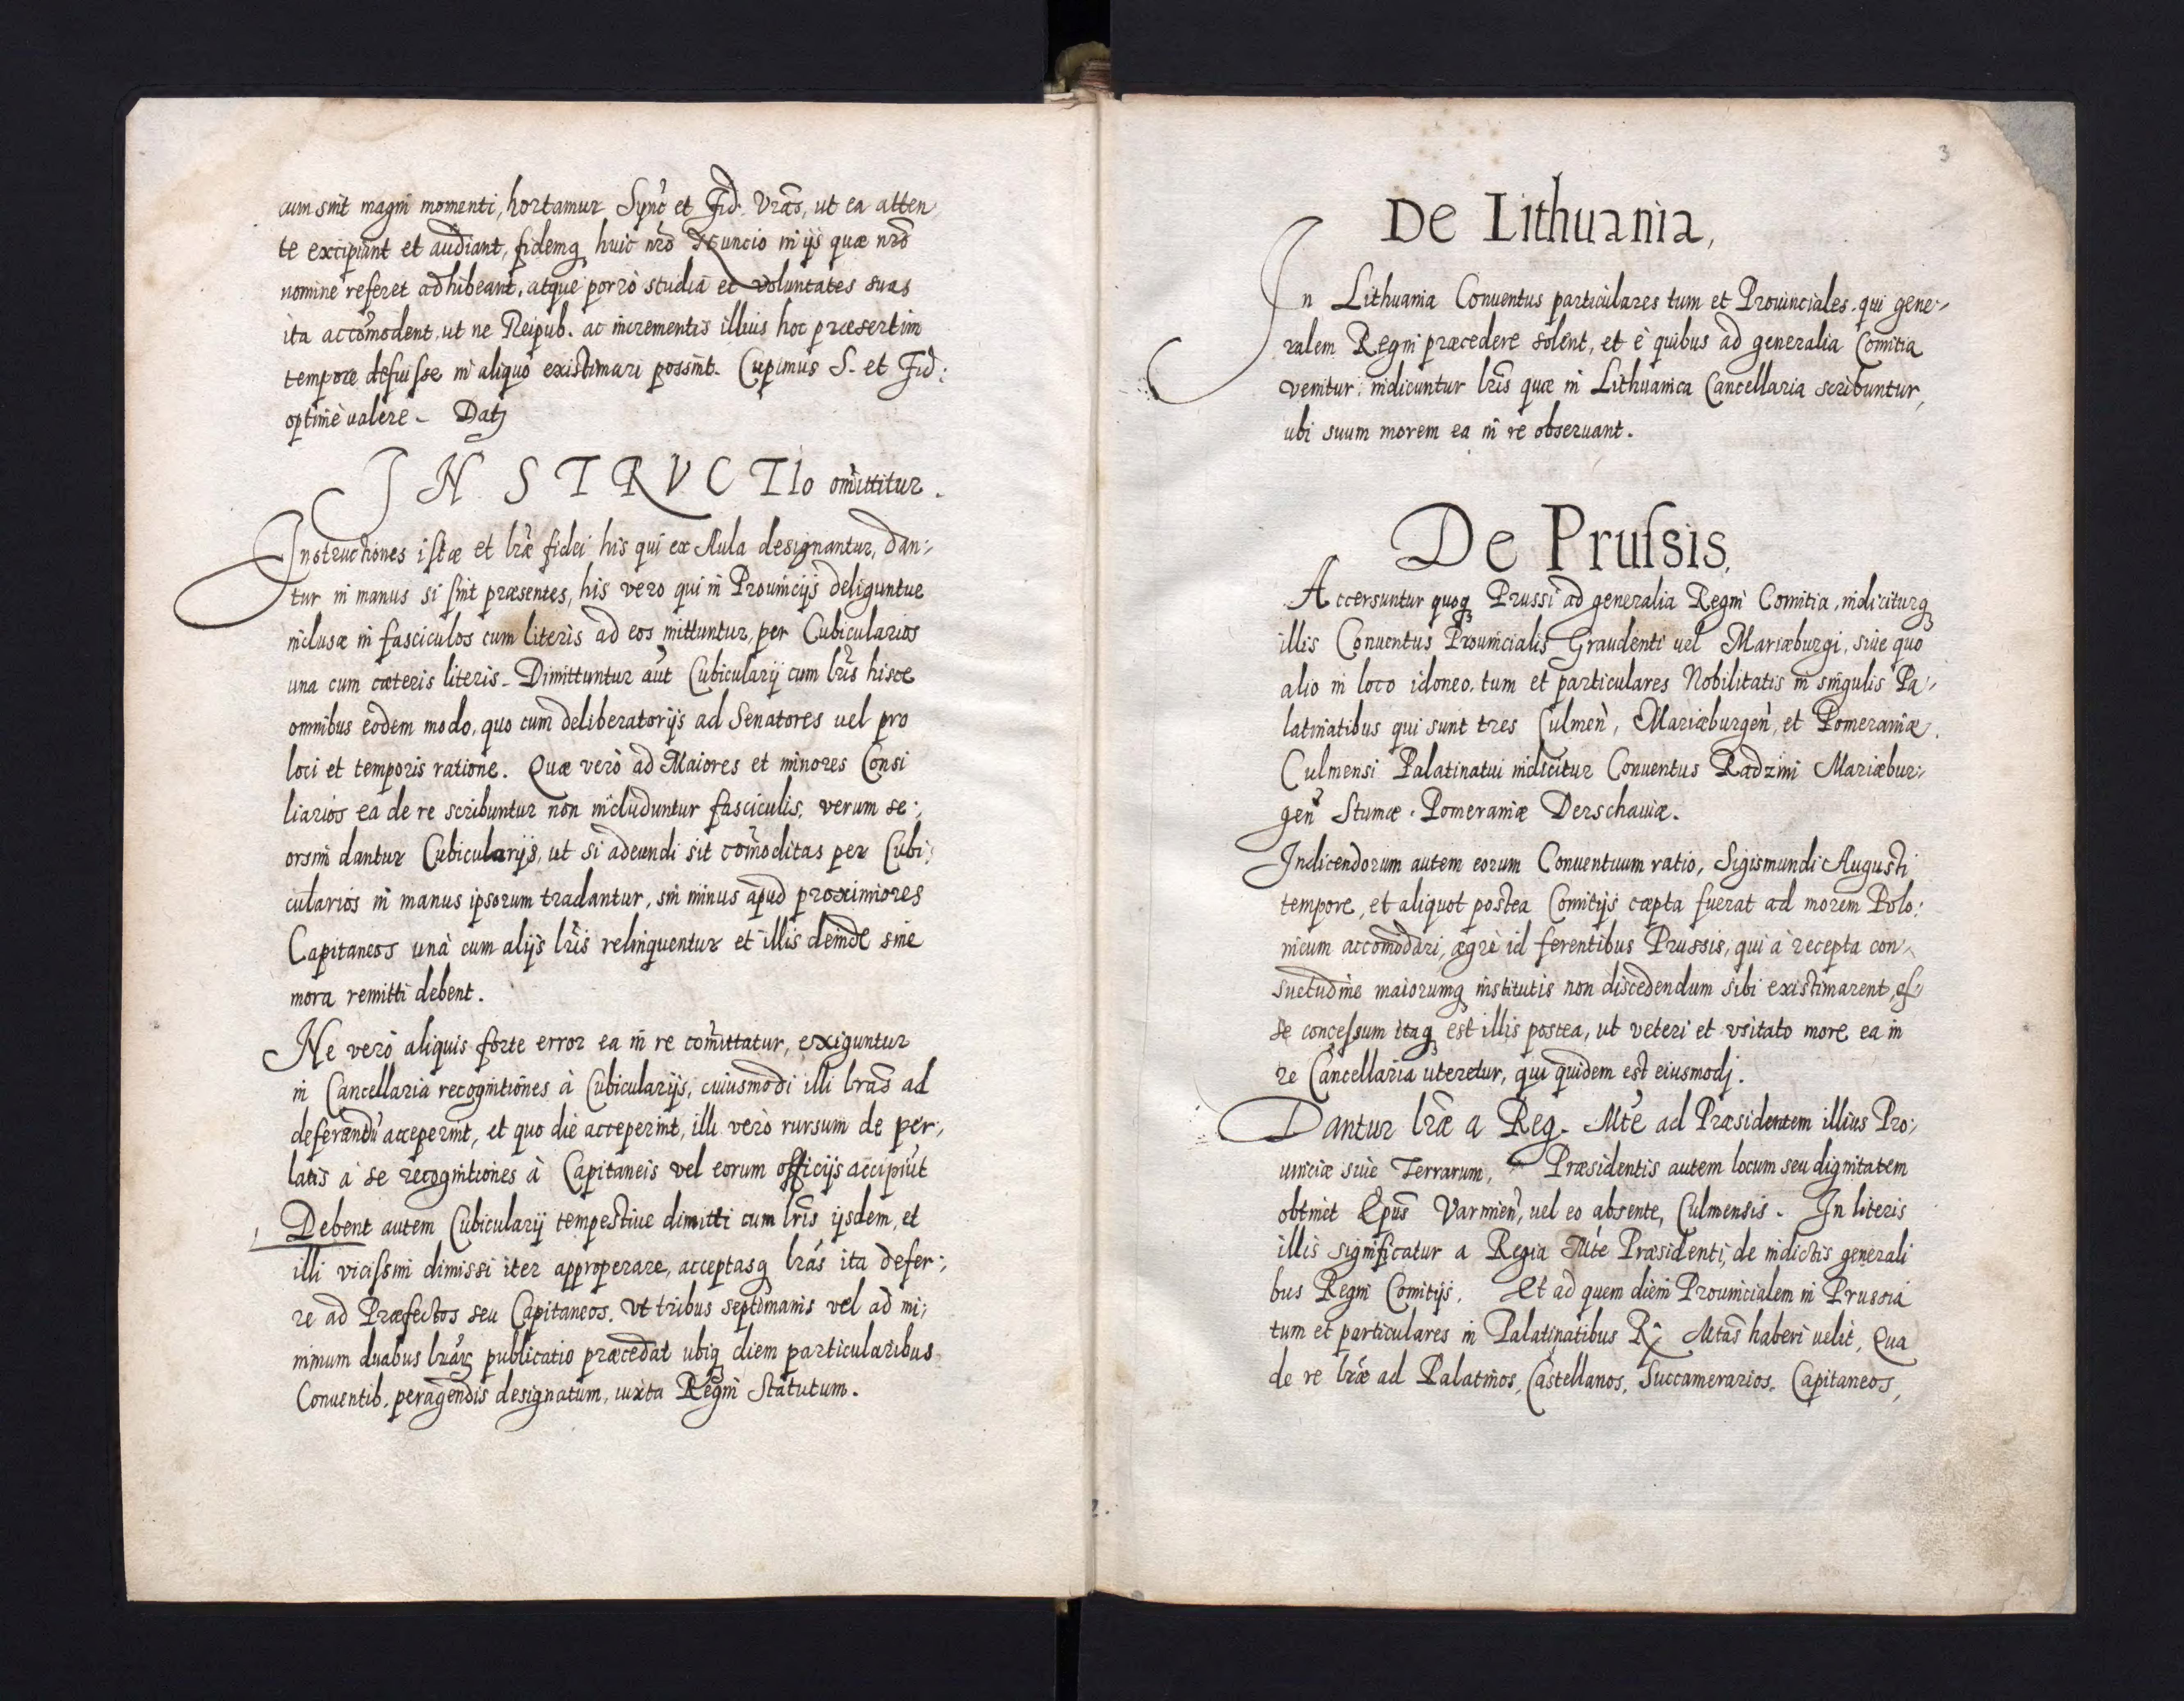 cum sint magni momenti, hortamur Sync̃ et Fid. Vrãs, ut ea atten
te excipiant et audiant, fidemq huic nrõ Nuncio in ijs quæ nrõ
nomine referet adhibeant, atque porrò studia et voluntates suas
ita accõmodent, ut ne Reipub. ac incrementis illius hoc præsertim
tempore defuisse in aliquo existimari possint. Cupimus S. et Fid:
optimè valere – Datȝ
INSTRVCTIo omittitur.
Instructiones istæ et lrǣ fidei his qui ex Aula designantur, dan:,
tur in manus si sint præsentes, his vero qui in Prouincijs deliguntur
inclusæ in fasciculos cum literis ad eos mittuntur, per Cubicularios
una cum cæteris literis. Dimittuntur aũt Cubicularij cum lrĩs hisce
omnibus eodem modo, quo cum deliberatorijs ad Senatores uel pro
loci et temporis ratione. Quæ verò ad Maiores et minores Consi
liarios ea de re scribuntur non includuntur fasciculis, verum se:,
orsim dantur Cubicularijs, ut si adeundi sit com̃oditas per Cubi:
cularios in manus ipsorum tradantur, sin minus apud proximiores
Capitaneos unà cum alijs lrĩs relinquentur et illis deinde sine
mora remitti debent.
Ne verò aliquis forte error ea in re com̃ittatur, exiguntur
in Cancellaria recognitiones à Cubicularijs, cuiusmodi illi lrãs ad
deferandũ acceperint, et quo die acceperint, illi verò rursum de per:,
latis à se recognitiones à Capitaneis vel eorum officijs accipiũt
Debent autem Cubicularij tempestiue dimitti cum lrĩs ijsdem, et
illi vicissim dimissi iter approperare, acceptasq lrãs ita defer:,
re ad Præfectos seu Capitaneos, vt tribus septimanis vel ad mi:,
nimum duabus lrãrȝ publicatio præcedat ubiq diem particularibus
Conuentib. peragendis designatum, iuxta Regni Statutum.
3
De Lithuania,
In Lithuania Conuentus particulares tum et Prouinciales, qui gene:,
ralem Regni præcedere solent, et è quibus ad generalia Comitia
venitur: indicuntur lrĩs quæ in Lithuanica Cancellaria scribuntur,
ubi suum morem ea in re obseruant.
De Prussis,
Accersuntur quoq Prussi ad generalia Regni Comitia, indiciturq
illis Conuentus Prouincialis Graudenti vel Mariæburgi, siue quo
alio in loco idoneo, tum et particulares Nobilitatis in singulis Pa:,
latinatibus qui sunt tres Culmeñ, Mariæburgeñ, et Pomeraniæ.
Culmensi Palatinatui indicitur Conuentus Radzini Mariæbur:,
geñ Stumæ. Pomeraniæ Derschauiæ.
Indicendorum autem eorum Conuentuum ratio, Sigismundi Augusti
tempore, et aliquot postea Comitijs cæpta fuerat ad morem Polo:
nicum accomodari, ægrè id ferentibus Prussis, qui à recepta con:,
suetudine maiorumq institutis non discedendum sibi existimarent, es:,
se concessum itaq est illis postea, ut veteri et vsitato more ea in
re Cancellaria uteretur, qui quidem est eiusmodj.
Dantur lrǣ a Reg. Mtẽ ad Præsidentem illius Pro:,
uinciæ siue Terrarum, Præsidentis autem locum seu dignitatem
obtinet Epũs Varmieñ, uel eo absente, Culmensis. In literis
illis significatur a Regia Mtẽ Præsidenti, de indictis generali
bus Regni Comitijs. Et ad quem diem Prouincialem in Prussia
tum et particulares in Palatinatibus R. Mtãs haberi uelit, Qua
de re lrǣ ad Palatinos, Castellanos, Succamerarios, Capitaneos,